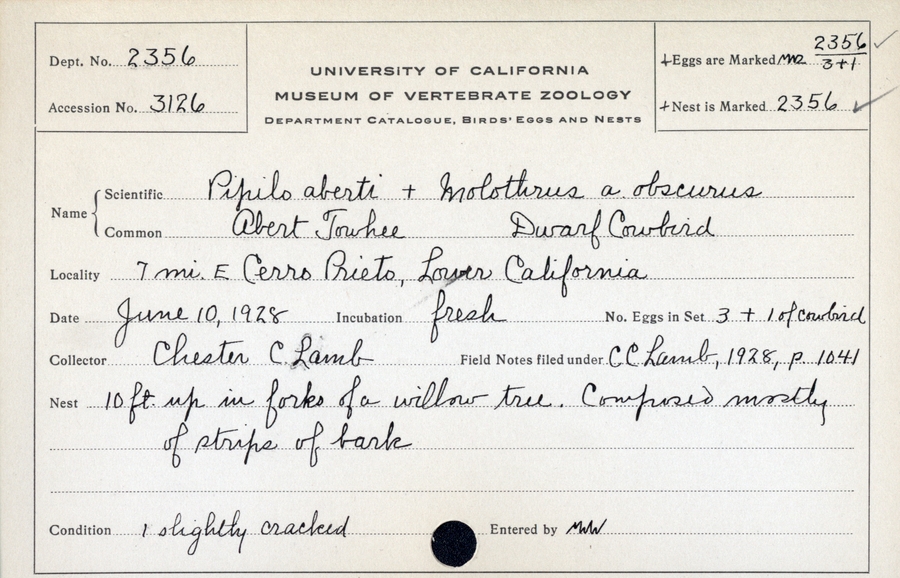 Dept. No. 2356
Accession No. 3126
UNIVERSITY OF CALIFORNIA
MUSEUM OF VERTEBRATE ZOOLOGY
DEPARTMENT CATALOGUE, BIRDS' EGGS AND NESTS
+Eggs are Marked 2356
3+1
+Nest is Marked 2356 ✓
Name { Scientific Pipilo aberti + Molothrus a. obscurus
Common Abert Towhee Dwarf Cowbird
Locality 7 mi. E Cerro Prieto, Lower California
Date June 10, 1928 Incubation fresh No. Eggs in Set 3 + 1 of cowbird
Collector Chester C. Lamb Field Notes filed under CC Lamb, 1928, p. 1041
Nest 10 ft. up in forks of a willow tree. Composed mostly
of strips of bark
Condition 1 slightly cracked Entered by